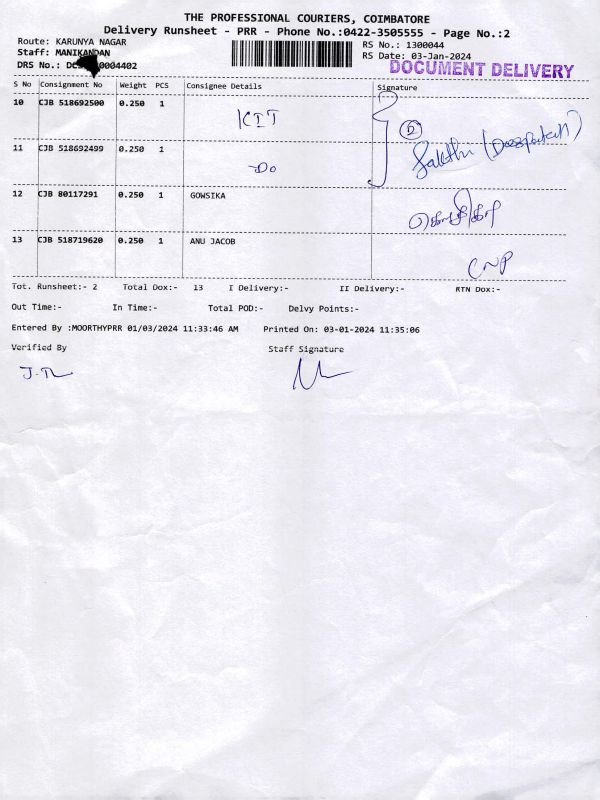 THE PROFESSIONAL COURIERS, COIMBATORE
Delivery Runsheet - PRR - Phone No.:0422-3505555 - Page No.:2
Route: KARUNYA NAGAR RS No.: 1300044
Staff: MANIKANDAN RS Date: 03-Jan-2024
DRS No.: 0004402 DOCUMENT DELIVERY
S No Consignment No Weight PCS Consignee Details Signature
10 CJB 518692500 0.250 1 KIT
2
11 CJB 518692499 0.250 1 Do Sakthi
12 CJB 80117291 0.250 1 GOWSIKA
13 CJB 518719620 0.250 1 ANU JACOB
CNP
Tot. Runsheet:- 2 Total Dox:- 13 I Delivery:- II Delivery:- RTN Dox:-
Out Time:- In Time:- Total POD:- Delvy Points:-
Entered By :MOORTHYPRR 01/03/2024 11:33:46 AM Printed On: 03-01-2024 11:35:06
Verified By Staff Signature